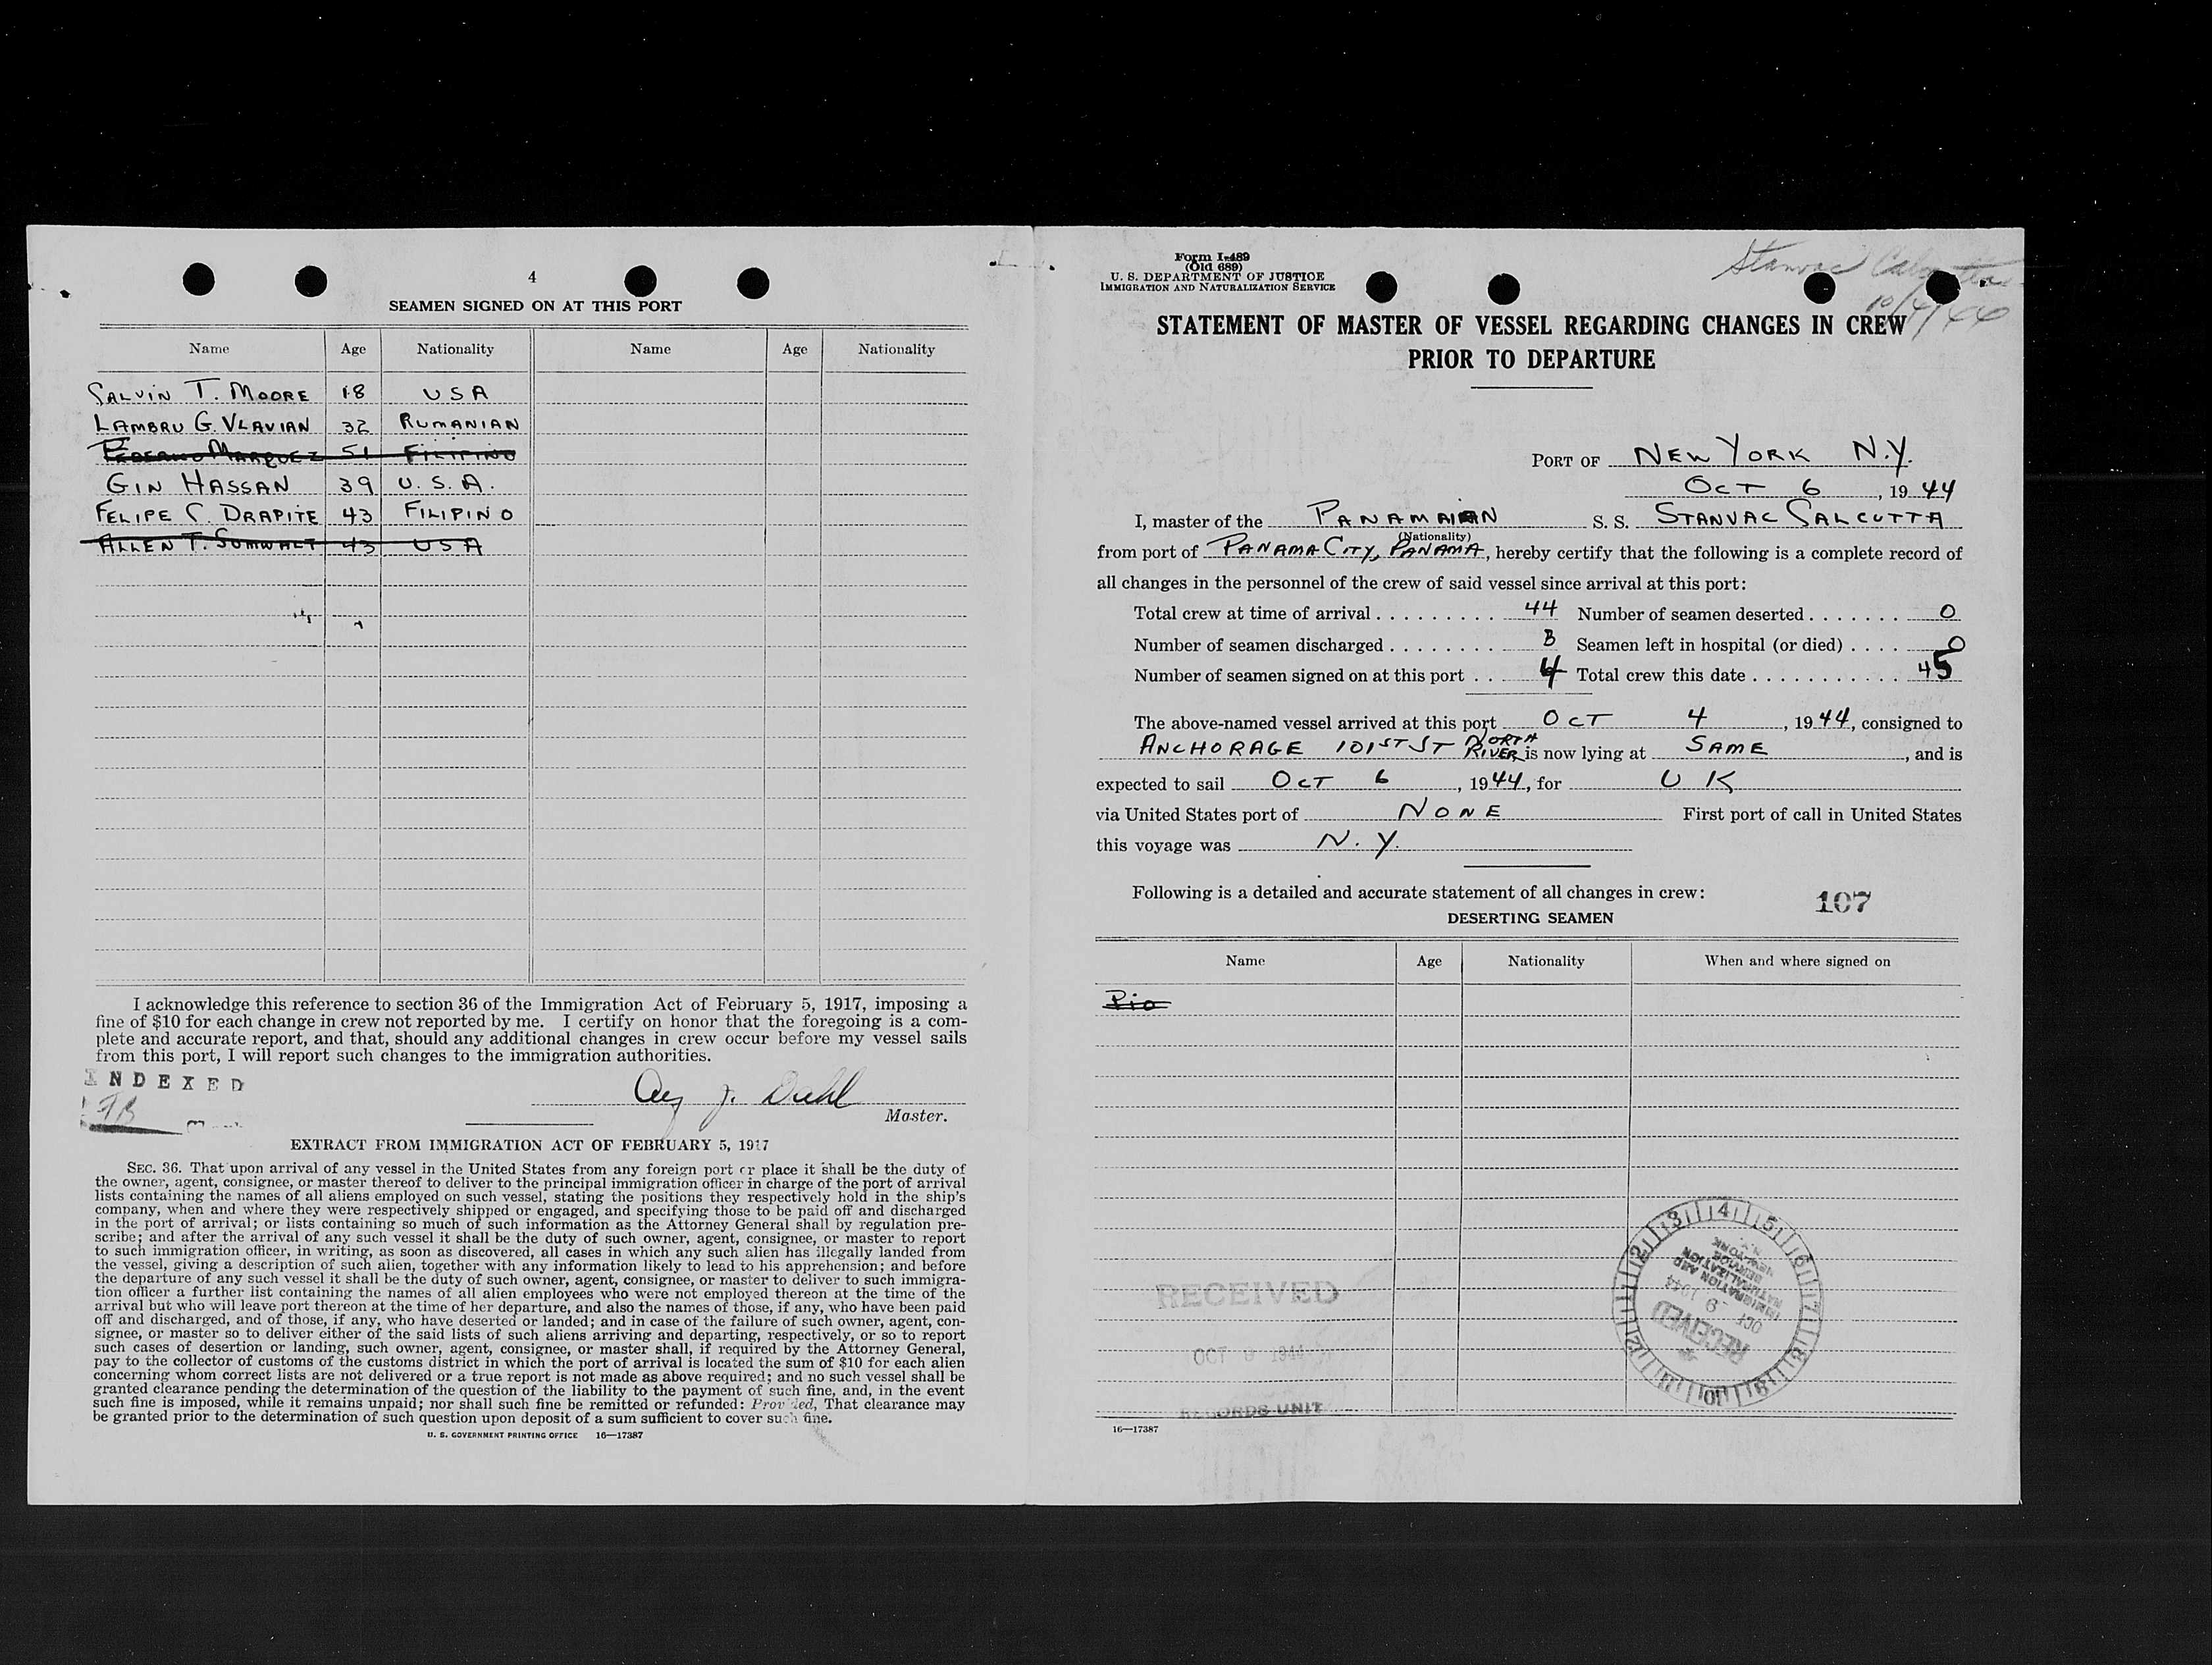 4
SEAMEN SIGNED ON AT THIS PORT
Name Age Nationality Name Age Nationality
CALVIN T. MOORE 18 USA
LAMBRU G. VLAVIAN 32 RUMANIAN
MARQUEZ 51 FILIPINO
GIN HASSAN 39 U.S.A.
FELIPE C. DRAPITE 43 FILIPINO
ALLEN T. SUMWALT 43 USA
I acknowledge this reference to section 36 of the Immigration Act of February 5, 1917, imposing a
fine of $10 for each change in crew not reported by me. I certify on honor that the foregoing is a com-
plete and accurate report, and that, should any additional changes in crew occur before my vessel sails
from this port, I will report such changes to the immigration authorities.
INDEXED
Aug J. Dahl
Master.
EXTRACT FROM IMMIGRATION ACT OF FEBRUARY 5, 1917
SEC. 36. That upon arrival of any vessel in the United States from any foreign port or place it shall be the duty of
the owner, agent, consignee, or master thereof to deliver to the principal immigration officer in charge of the port of arrival
lists containing the names of all aliens employed on such vessel, stating the positions they respectively hold in the ship's
company, when and where they were respectively shipped or engaged, and specifying those to be paid off and discharged
in the port of arrival; or lists containing so much of such information as the Attorney General shall by regulation pre-
scribe; and after the arrival of any such vessel it shall be the duty of such owner, agent, consignee, or master to report
to such immigration officer, in writing, as soon as discovered, all cases in which any such alien has illegally landed from
the vessel, giving a description of such alien, together with any information likely to lead to his apprehension; and before
the departure of any such vessel it shall be the duty of such owner, agent, consignee, or master to deliver to such immigra-
tion officer a further list containing the names of all alien employees who were not employed thereon at the time of the
arrival but who will leave port thereon at the time of her departure, and also the names of those, if any, who have been paid
off and discharged, and of those, if any, who have deserted or landed; and in case of the failure of such owner, agent, con-
signee, or master so to deliver either of the said lists of such aliens arriving and departing, respectively, or so to report
such cases of desertion or landing, such owner, agent, consignee, or master shall, if required by the Attorney General,
pay to the collector of customs of the customs district in which the port of arrival is located the sum of $10 for each alien
concerning whom correct lists are not delivered or a true report is not made as above required; and no such vessel shall be
granted clearance pending the determination of the question of the liability to the payment of such fine, and, in the event
such fine is imposed, while it remains unpaid; nor shall such fine be remitted or refunded: Provided, That clearance may
be granted prior to the determination of such question upon deposit of a sum sufficient to cover such fine.
U. S. GOVERNMENT PRINTING OFFICE 16—17387
Form I-489
(Old 689)
U. S. DEPARTMENT OF JUSTICE
IMMIGRATION AND NATURALIZATION SERVICE
Stanvac Calcutta
10/4/44
STATEMENT OF MASTER OF VESSEL REGARDING CHANGES IN CREW
PRIOR TO DEPARTURE
PORT OF NEW YORK N.Y.
OCT 6, 1944
I, master of the PANAMAIAN S. S. STANVAC CALCUTTA
(Nationality)
from port of PANAMA CITY, PANAMA, hereby certify that the following is a complete record of
all changes in the personnel of the crew of said vessel since arrival at this port:
Total crew at time of arrival 44 Number of seamen deserted 0
Number of seamen discharged 3 Seamen left in hospital (or died) 0
Number of seamen signed on at this port 4 Total crew this date 45
The above-named vessel arrived at this port OCT 4, 1944, consigned to
ANCHORAGE 101ST ST NORTH RIVER is now lying at SAME, and is
expected to sail OCT 6, 1944, for U K
via United States port of NONE First port of call in United States
this voyage was N.Y.
Following is a detailed and accurate statement of all changes in crew:
107
DESERTING SEAMEN
Name Age Nationality When and where signed on
Pio
RECEIVED
OCT 9 1944
RECORDS UNIT
1 2 3 4 5 6 7 8 9 10 11 12
IMMIGRATION AND
NATURALIZATION
SERVICE
NEW YORK
N.Y.
OCT -9 1944
RECEIVED
16—17387